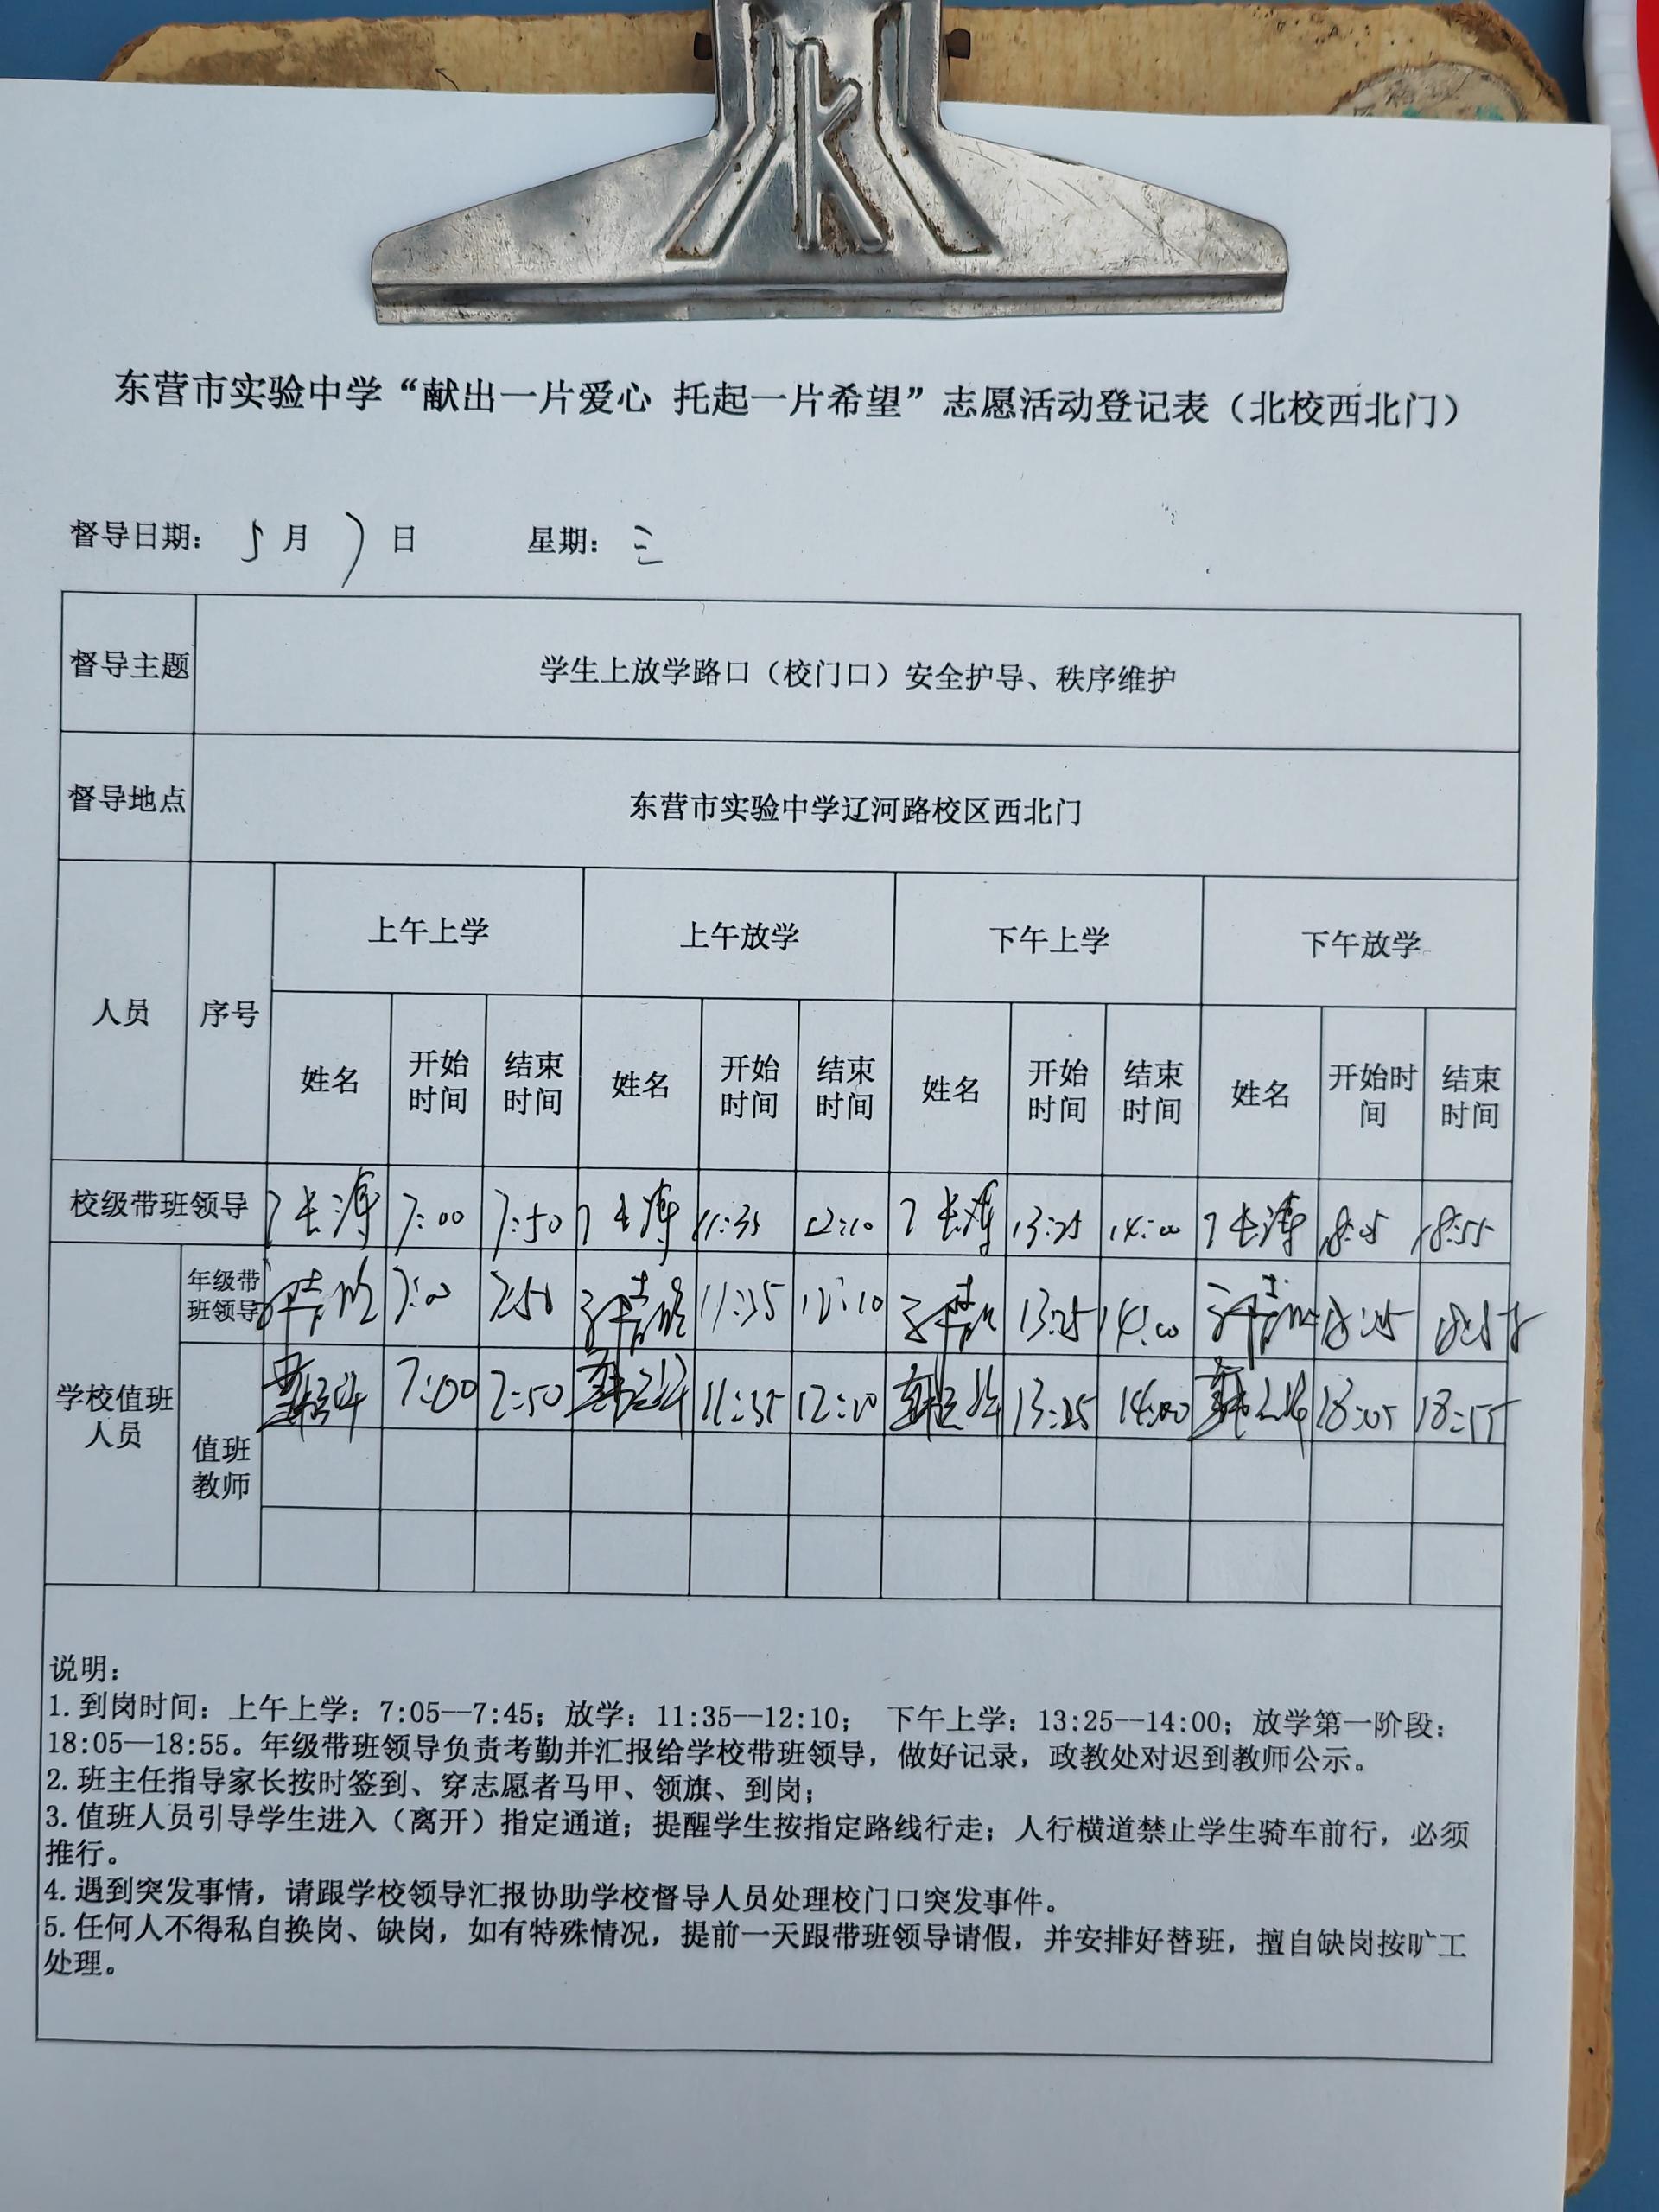 东营市实验中学“献出一片爱心 托起一片希望”志愿活动登记表（北校西北门）
督导日期： 5 月 7 日 星期： 三
督导主题 学生上放学路口（校门口）安全护导、秩序维护
督导地点 东营市实验中学辽河路校区西北门
人员 序号 上午上学 上午放学 下午上学 下午放学
姓名 开始时间 结束时间 姓名 开始时间 结束时间 姓名 开始时间 结束时间 姓名 开始时间 结束时间
校级带班领导 7:00 7:50 11:35 12:10 13:25 14:00 18:05 18:55
学校值班人员
年级带班领导 7:00 7:50 11:35 12:10 13:25 14:00 18:05 18:55
值班教师 7:00 7:50 11:35 12:10 13:25 14:00 18:05 18:55
说明：
1.到岗时间：上午上学：7:05—7:45；放学：11:35—12:10； 下午上学：13:25—14:00；放学第一阶段：
18:05—18:55。年级带班领导负责考勤并汇报给学校带班领导，做好记录，政教处对迟到教师公示。
2.班主任指导家长按时签到、穿志愿者马甲、领旗、到岗；
3.值班人员引导学生进入（离开）指定通道；提醒学生按指定路线行走；人行横道禁止学生骑车前行，必须
推行。
4.遇到突发事情，请跟学校领导汇报协助学校督导人员处理校门口突发事件。
5.任何人不得私自换岗、缺岗，如有特殊情况，提前一天跟带班领导请假，并安排好替班，擅自缺岗按旷工
处理。